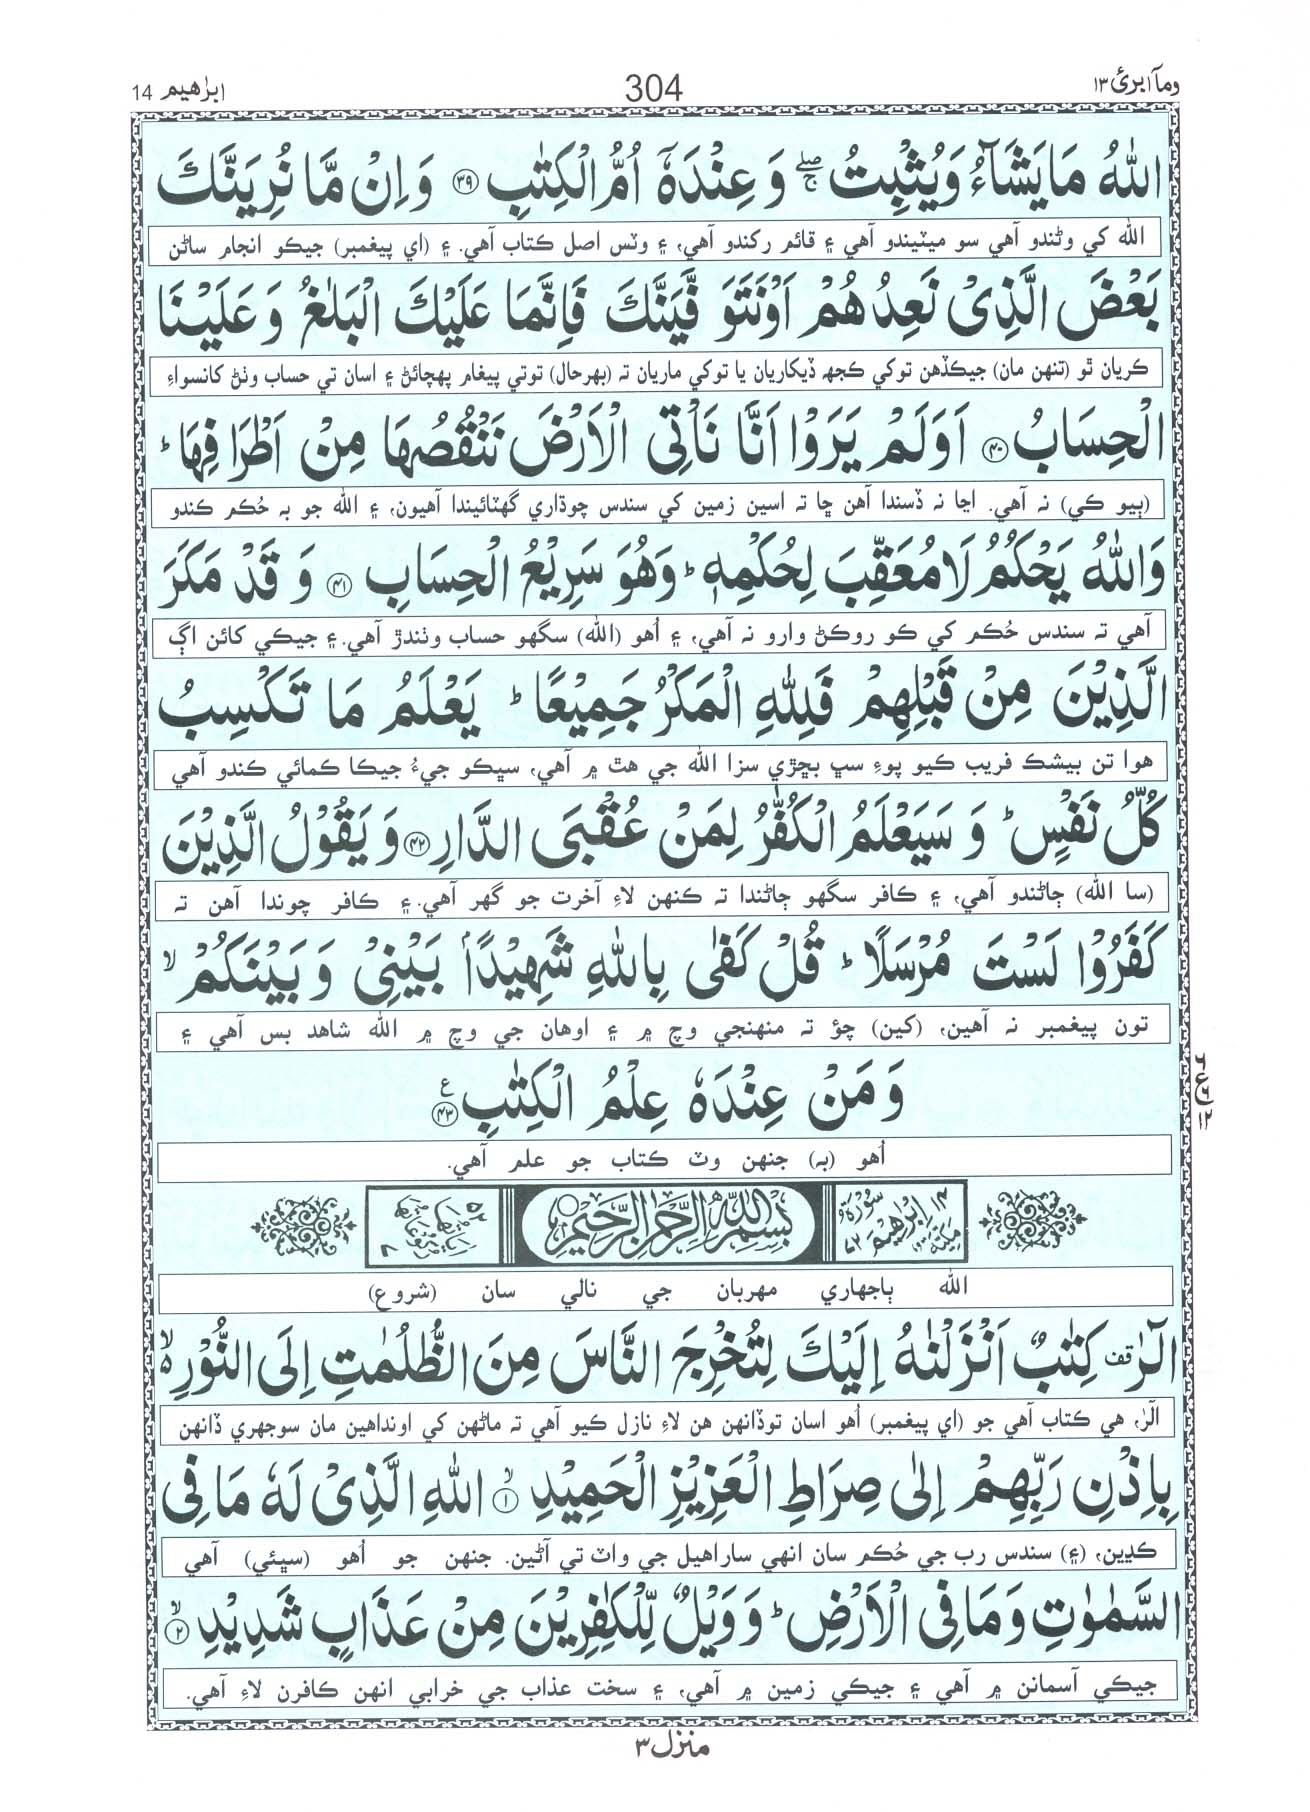 ومآ ابرئ ١٣
304
ابرٰهيم 14
اللّٰهُ مَا يَشَآءُ وَيُثْبِتُ ۖۚ وَ عِنْدَهٗٓ اُمُّ الْكِتٰبِ ﴿۳۹﴾ وَ اِنْ مَّا نُرِيَنَّكَ
الله کي وڻندو آهي سو ميٽيندو آهي ۽ قائم رکندو آهي، ۽ وٽس اصل ڪتاب آهي. ۽ (اي پيغمبر) جيڪو انجام ساڻن
بَعْضَ الَّذِيْ نَعِدُهُمْ اَوْ نَتَوَفَّيَنَّكَ فَاِنَّمَا عَلَيْكَ الْبَلٰغُ وَ عَلَيْنَا
ڪريان ٿو (تنهن مان) جيڪڏهن توکي ڪجهہ ڏيکاريان يا توکي ماريان تہ (بهرحال) توتي پيغام پهچائڻ ۽ اسان تي حساب وٺڻ کانسواءِ
الْحِسَابُ ﴿۴۰﴾ اَوَلَمْ يَرَوْا اَنَّا نَاْتِي الْاَرْضَ نَنْقُصُهَا مِنْ اَطْرَافِهَا ؕ
(ٻيو ڪي) نہ آهي. اڃا نہ ڏسندا آهن ڇا تہ اسين زمين کي سندس چوڌاري گهٽائيندا آهيون، ۽ الله جو بہ حُڪم ڪندو
وَاللّٰهُ يَحْكُمُ لَا مُعَقِّبَ لِحُكْمِهٖ ؕ وَهُوَ سَرِيْعُ الْحِسَابِ ﴿۴۱﴾ وَ قَدْ مَكَرَ
آهي تہ سندس حُڪم کي ڪو روڪڻ وارو نہ آهي، ۽ اُهو (الله) سگهو حساب وٺندڙ آهي. ۽ جيڪي کائن اڳ
الَّذِيْنَ مِنْ قَبْلِهِمْ فَلِلّٰهِ الْمَكْرُ جَمِيْعًا ؕ يَعْلَمُ مَا تَكْسِبُ
هوا تن بيشڪ فريب ڪيو پوءِ سڀ بڇڙي سزا الله جي هٿ ۾ آهي، سڀڪو جيءُ جيڪا ڪمائي ڪندو آهي
كُلُّ نَفْسٍ ؕ وَ سَيَعْلَمُ الْكُفّٰرُ لِمَنْ عُقْبَى الدَّارِ ﴿۴۲﴾ وَ يَقُوْلُ الَّذِيْنَ
(سا الله) ڄاڻندو آهي، ۽ ڪافر سگهو ڄاڻندا تہ ڪنهن لاءِ آخرت جو گهر آهي. ۽ ڪافر چوندا آهن تہ
كَفَرُوْا لَسْتَ مُرْسَلًا ؕ قُلْ كَفٰى بِاللّٰهِ شَهِيْدًۢا بَيْنِيْ وَ بَيْنَكُمْ ۙ
تون پيغمبر نہ آهين، (کين) چؤ تہ منهنجي وچ ۾ ۽ اوهان جي وچ ۾ الله شاهد بس آهي ۽
وَ مَنْ عِنْدَهٗ عِلْمُ الْكِتٰبِ ﴿۴۳﴾ ع
اُهو (بہ) جنهن وٽ ڪتاب جو علم آهي.
سُوْرَةُ اِبْرٰهِيْمَ مَكِّيَّةٌ
بِسْمِ اللّٰهِ الرَّحْمٰنِ الرَّحِيْمِ
الله ٻاجهاري مهربان جي نالي سان (شروع)
الٓرٰ ۫ كِتٰبٌ اَنْزَلْنٰهُ اِلَيْكَ لِتُخْرِجَ النَّاسَ مِنَ الظُّلُمٰتِ اِلَى النُّوْرِ ۙ
الٓرٰ، هي ڪتاب آهي جو (اي پيغمبر) اُهو اسان توڏانهن هن لاءِ نازل ڪيو آهي تہ ماڻهن کي اونداهين مان سوجهري ڏانهن
بِاِذْنِ رَبِّهِمْ اِلٰى صِرَاطِ الْعَزِيْزِ الْحَمِيْدِ ﴿۱﴾ ۙ اللّٰهِ الَّذِيْ لَهٗ مَا فِي
ڪڍين، (۽) سندس رب جي حُڪم سان انهي ساراهيل جي واٽ تي آڻين. جنهن جو اُهو (سڀئي) آهي
السَّمٰوٰتِ وَ مَا فِي الْاَرْضِ ؕ وَ وَيْلٌ لِّلْكٰفِرِيْنَ مِنْ عَذَابٍ شَدِيْدِ ﴿۲﴾ ۙ
جيڪي آسمانن ۾ آهي ۽ جيڪي زمين ۾ آهي، ۽ سخت عذاب جي خرابي انهن ڪافرن لاءِ آهي.
منزل ۳